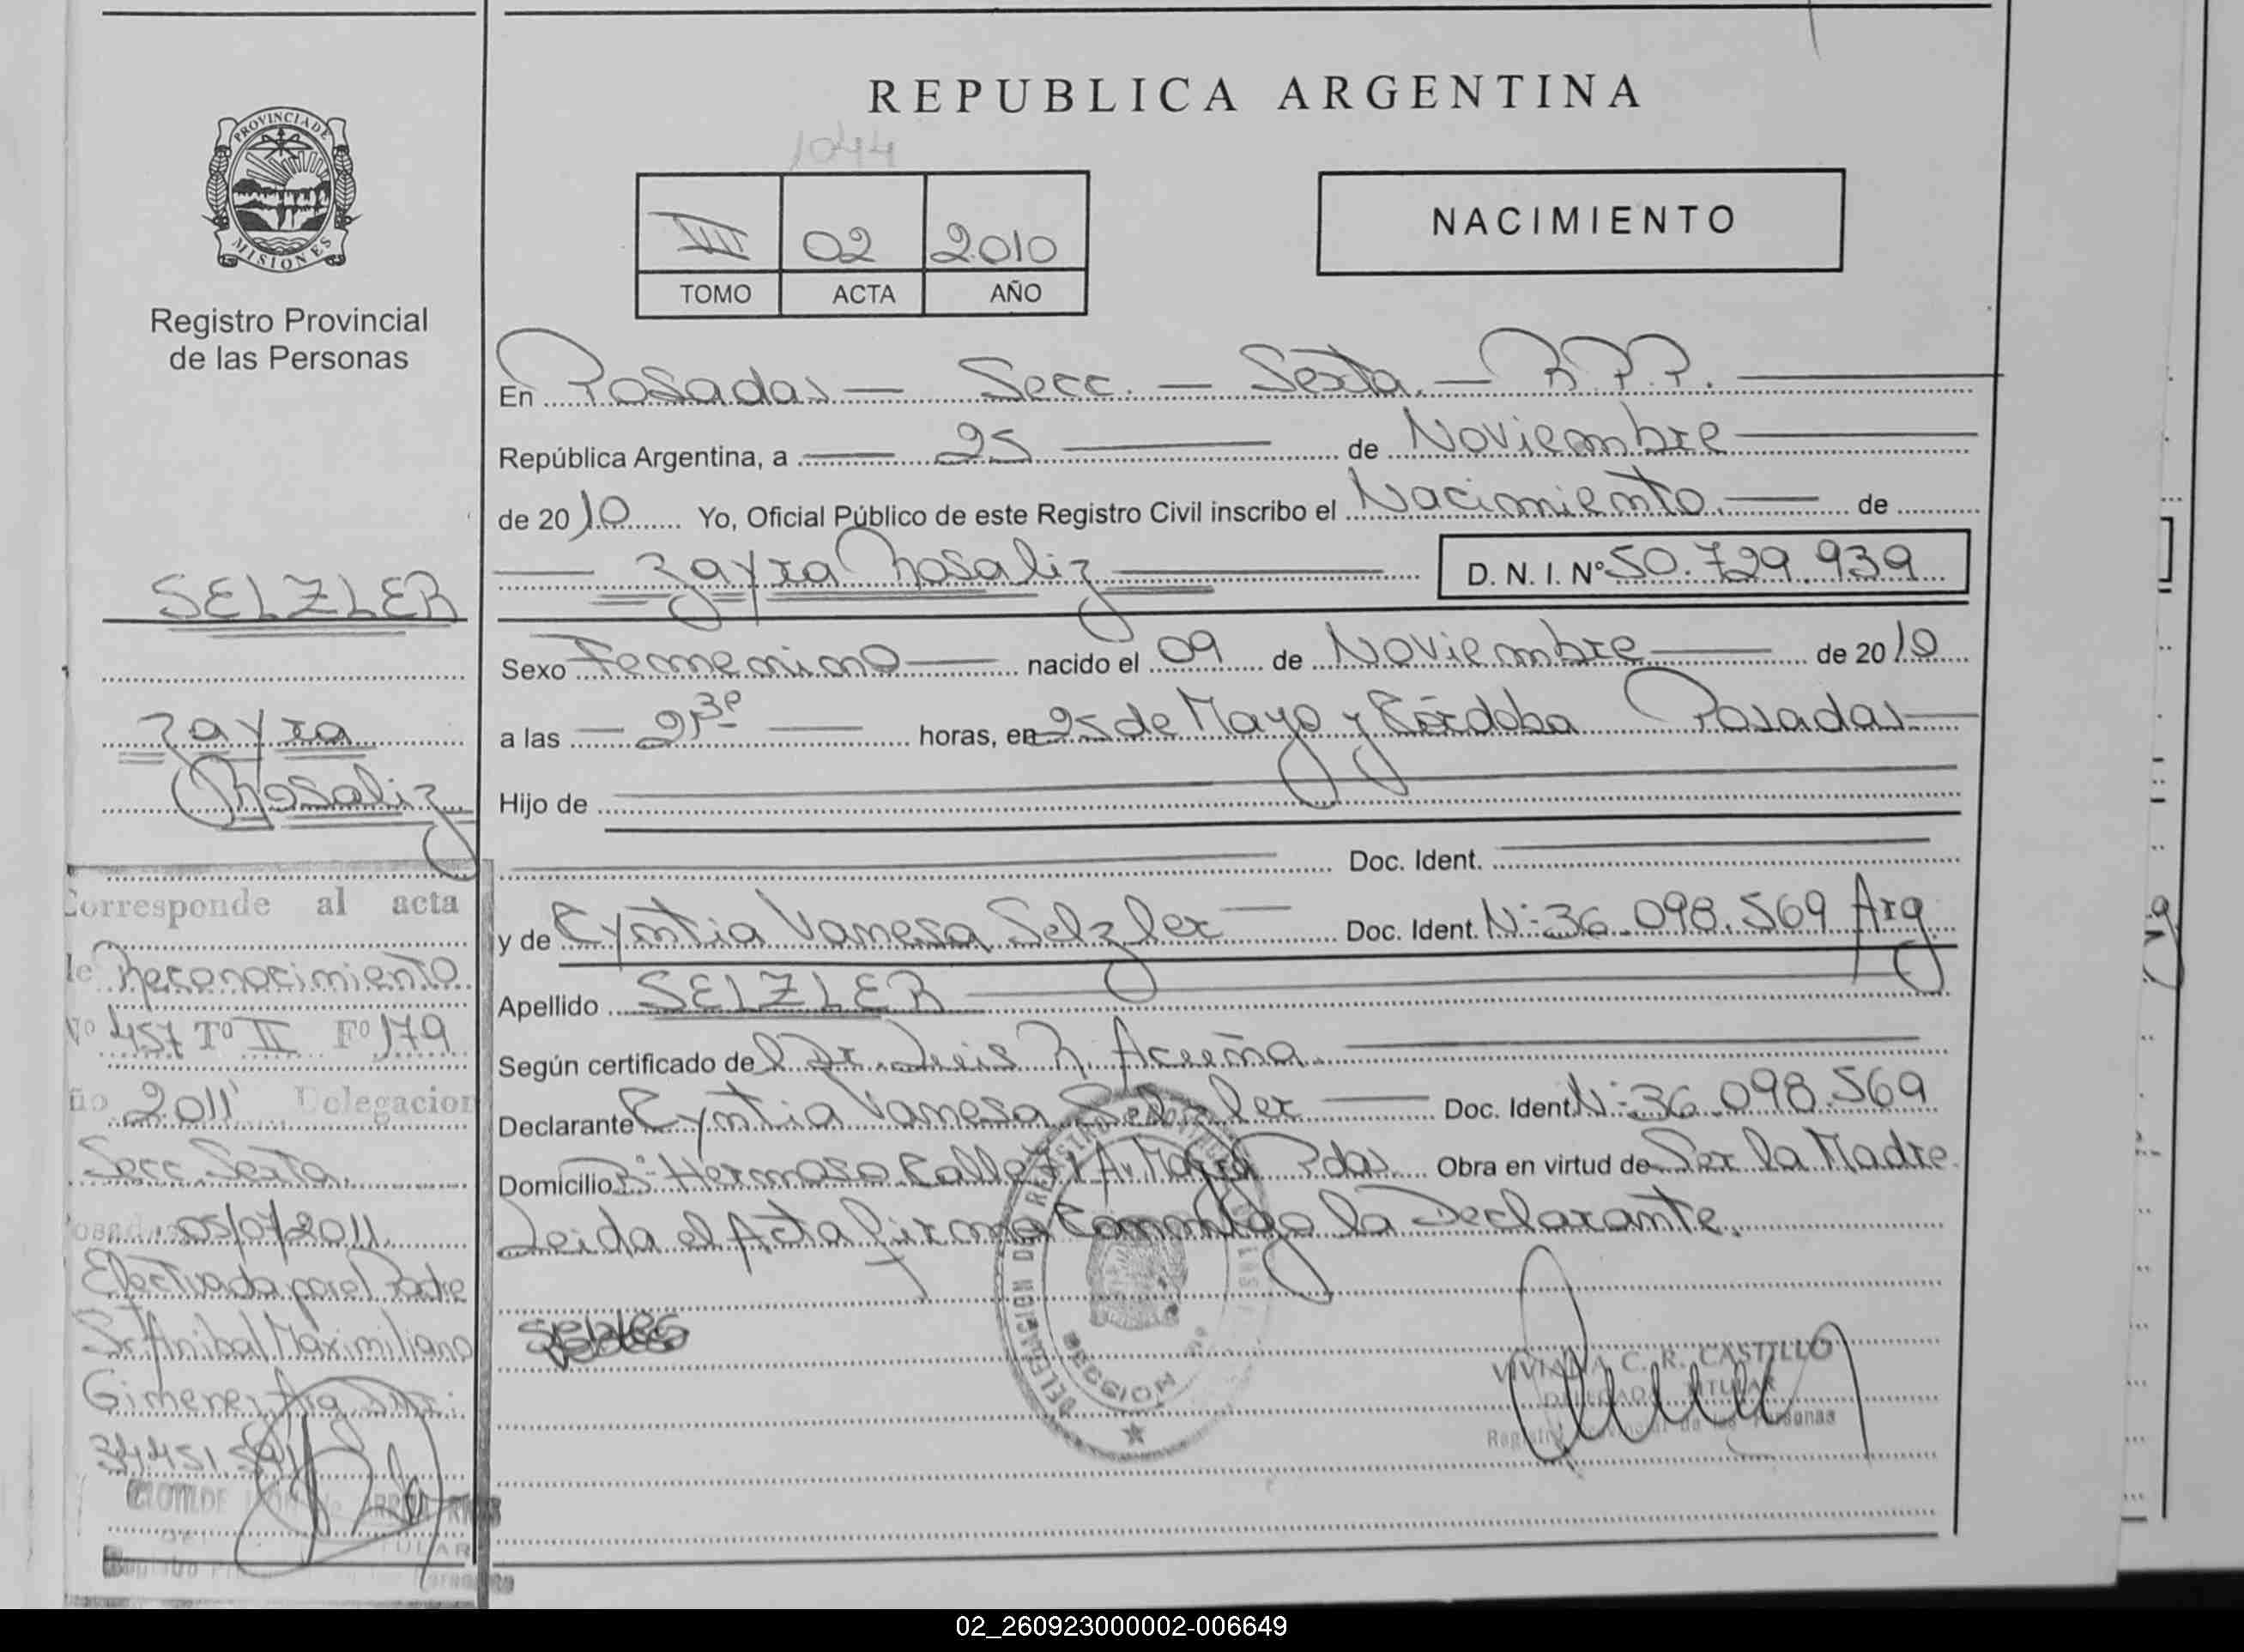 REPUBLICA ARGENTINA
1044
PROVINCIA DE
MISIONES
Registro Provincial
de las Personas
VII 02 2010
TOMO ACTA AÑO
NACIMIENTO
En Posadas — Secc. — Sexta. — R.P.P.
República Argentina, a 25 de Noviembre
de 2010 Yo, Oficial Público de este Registro Civil inscribo el Nacimiento. de
Zayra Rosaliz D. N. I. Nº 50.729.939
Sexo Femenino nacido el 09 de Noviembre de 2010
a las 21³⁰ horas, en 25 de Mayo y Córdoba Posadas
Hijo de
Doc. Ident.
y de Cyntia Vanesa Selzler Doc. Ident. Nº 36.098.569 Arg
Apellido SELZLER
Según certificado del Dr. Luis R. Acuña
Declarante Cyntia Vanesa Selzler Doc. Ident. Nº 36.098.569
Domicilio Bº Hermoso Calle Pdas. Obra en virtud de Ser la Madre
Leida el Acta firma Conmigo la Declarante.
VIVIANA C. R. CASTILLO
DELEGADA TITULAR
Registro Provincial de las Personas
SELZLER
Zayra
Rosaliz
Corresponde al acta
de Reconocimiento
Nº 457 Tº II Fº 179
Año 2011 Delegacion
Secc. Sexta.
Posadas 05/07/2011
Efectuada por el Padre
Sr. Anibal Maximiliano
Gimenez Arg
CLOTILDE
02_260923000002-006649